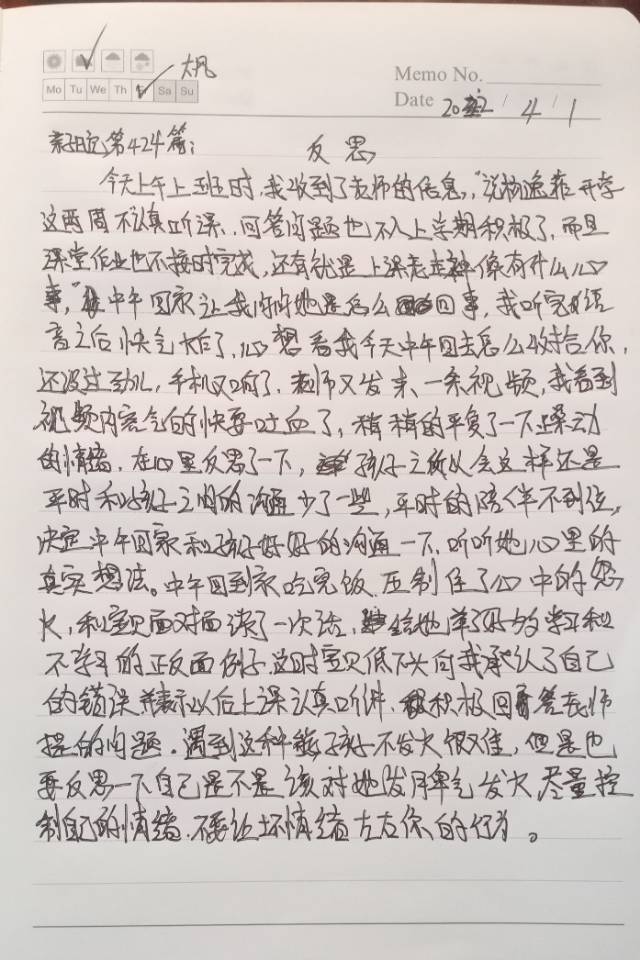 大风
Memo No.
Mo Tu We Th Sa Su
Date 2022 / 4 / 1
亲子日记第424篇:
反思
今天上午上班时,我收到了老师的信息,"说杨逸菲开学
这两周不认真听课、回答问题也不入上学期积极了,而且
课堂作业也不按时完成,还有就是上课老走神像有什么心
事,"中午回家让我问问她是怎么回事,我听完语
音之后快气炸了,心想看我今天中午回去怎么收拾你,
还没过劲儿,手机又响了,老师又发来一条视频,我看到
视频内容气的快要吐血了,稍稍的平复了一下躁动
的情绪,在心里反思了一下,孩子之所以会这样还是
平时和孩子之间的沟通少了一些,平时的陪伴不到位,
决定中午回家和孩子好好的沟通一下,听听她心里的
真实想法。中午回到家吃完饭,压制住了心中的怒
火,和宝贝面对面谈了一次话,给她举了好多学习和
不学习的正反面例子,这时宝贝低下头向我承认了自己
的错误并表示以后上课认真听讲、积极回答老师
提的问题。遇到这种熊孩子不发火很难,但是也
要反思一下自己是不是该对她发脾气发火,尽量控
制自己的情绪,不要让坏情绪左右你的行为。